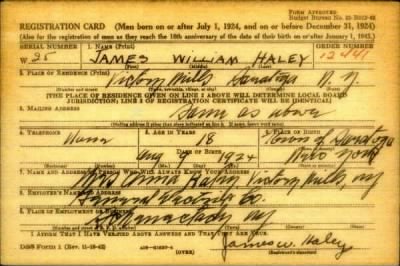 REGISTRATION CARD (Men born on or after July 1, 1924, and on or before December 31, 1924)
(Also for the registration of men as they reach the 18th anniversary of the date of their birth on or after January 1, 1943.)
SERIAL NUMBER 1. NAME (Print) ORDER NUMBER
W 35 JAMES WILLIAM HALEY
2. PLACE OF RESIDENCE (Print)
Victory Mills Saratoga N.Y.
(THE PLACE OF RESIDENCE GIVEN ON LINE 2 ABOVE WILL DETERMINE LOCAL BOARD
JURISDICTION; LINE 2 OF REGISTRATION CERTIFICATE WILL BE IDENTICAL)
3. MAILING ADDRESS
Same as above
4. TELEPHONE 5. AGE IN YEARS 6. PLACE OF BIRTH
None 18 Town of Saratoga
DATE OF BIRTH
Aug 9 1924 New York
7. NAME AND ADDRESS OF PERSON WHO WILL ALWAYS KNOW YOUR ADDRESS
Mrs Anna Haley Victory Mills, NY
8. EMPLOYER'S NAME AND ADDRESS
General Electric Co.
9. PLACE OF EMPLOYMENT OR BUSINESS
Schenectady NY
I AFFIRM THAT I HAVE VERIFIED ABOVE ANSWERS AND THAT THEY ARE TRUE.
DSS Form 1 (Rev. 11-16-42) (OVER)
James W. Haley